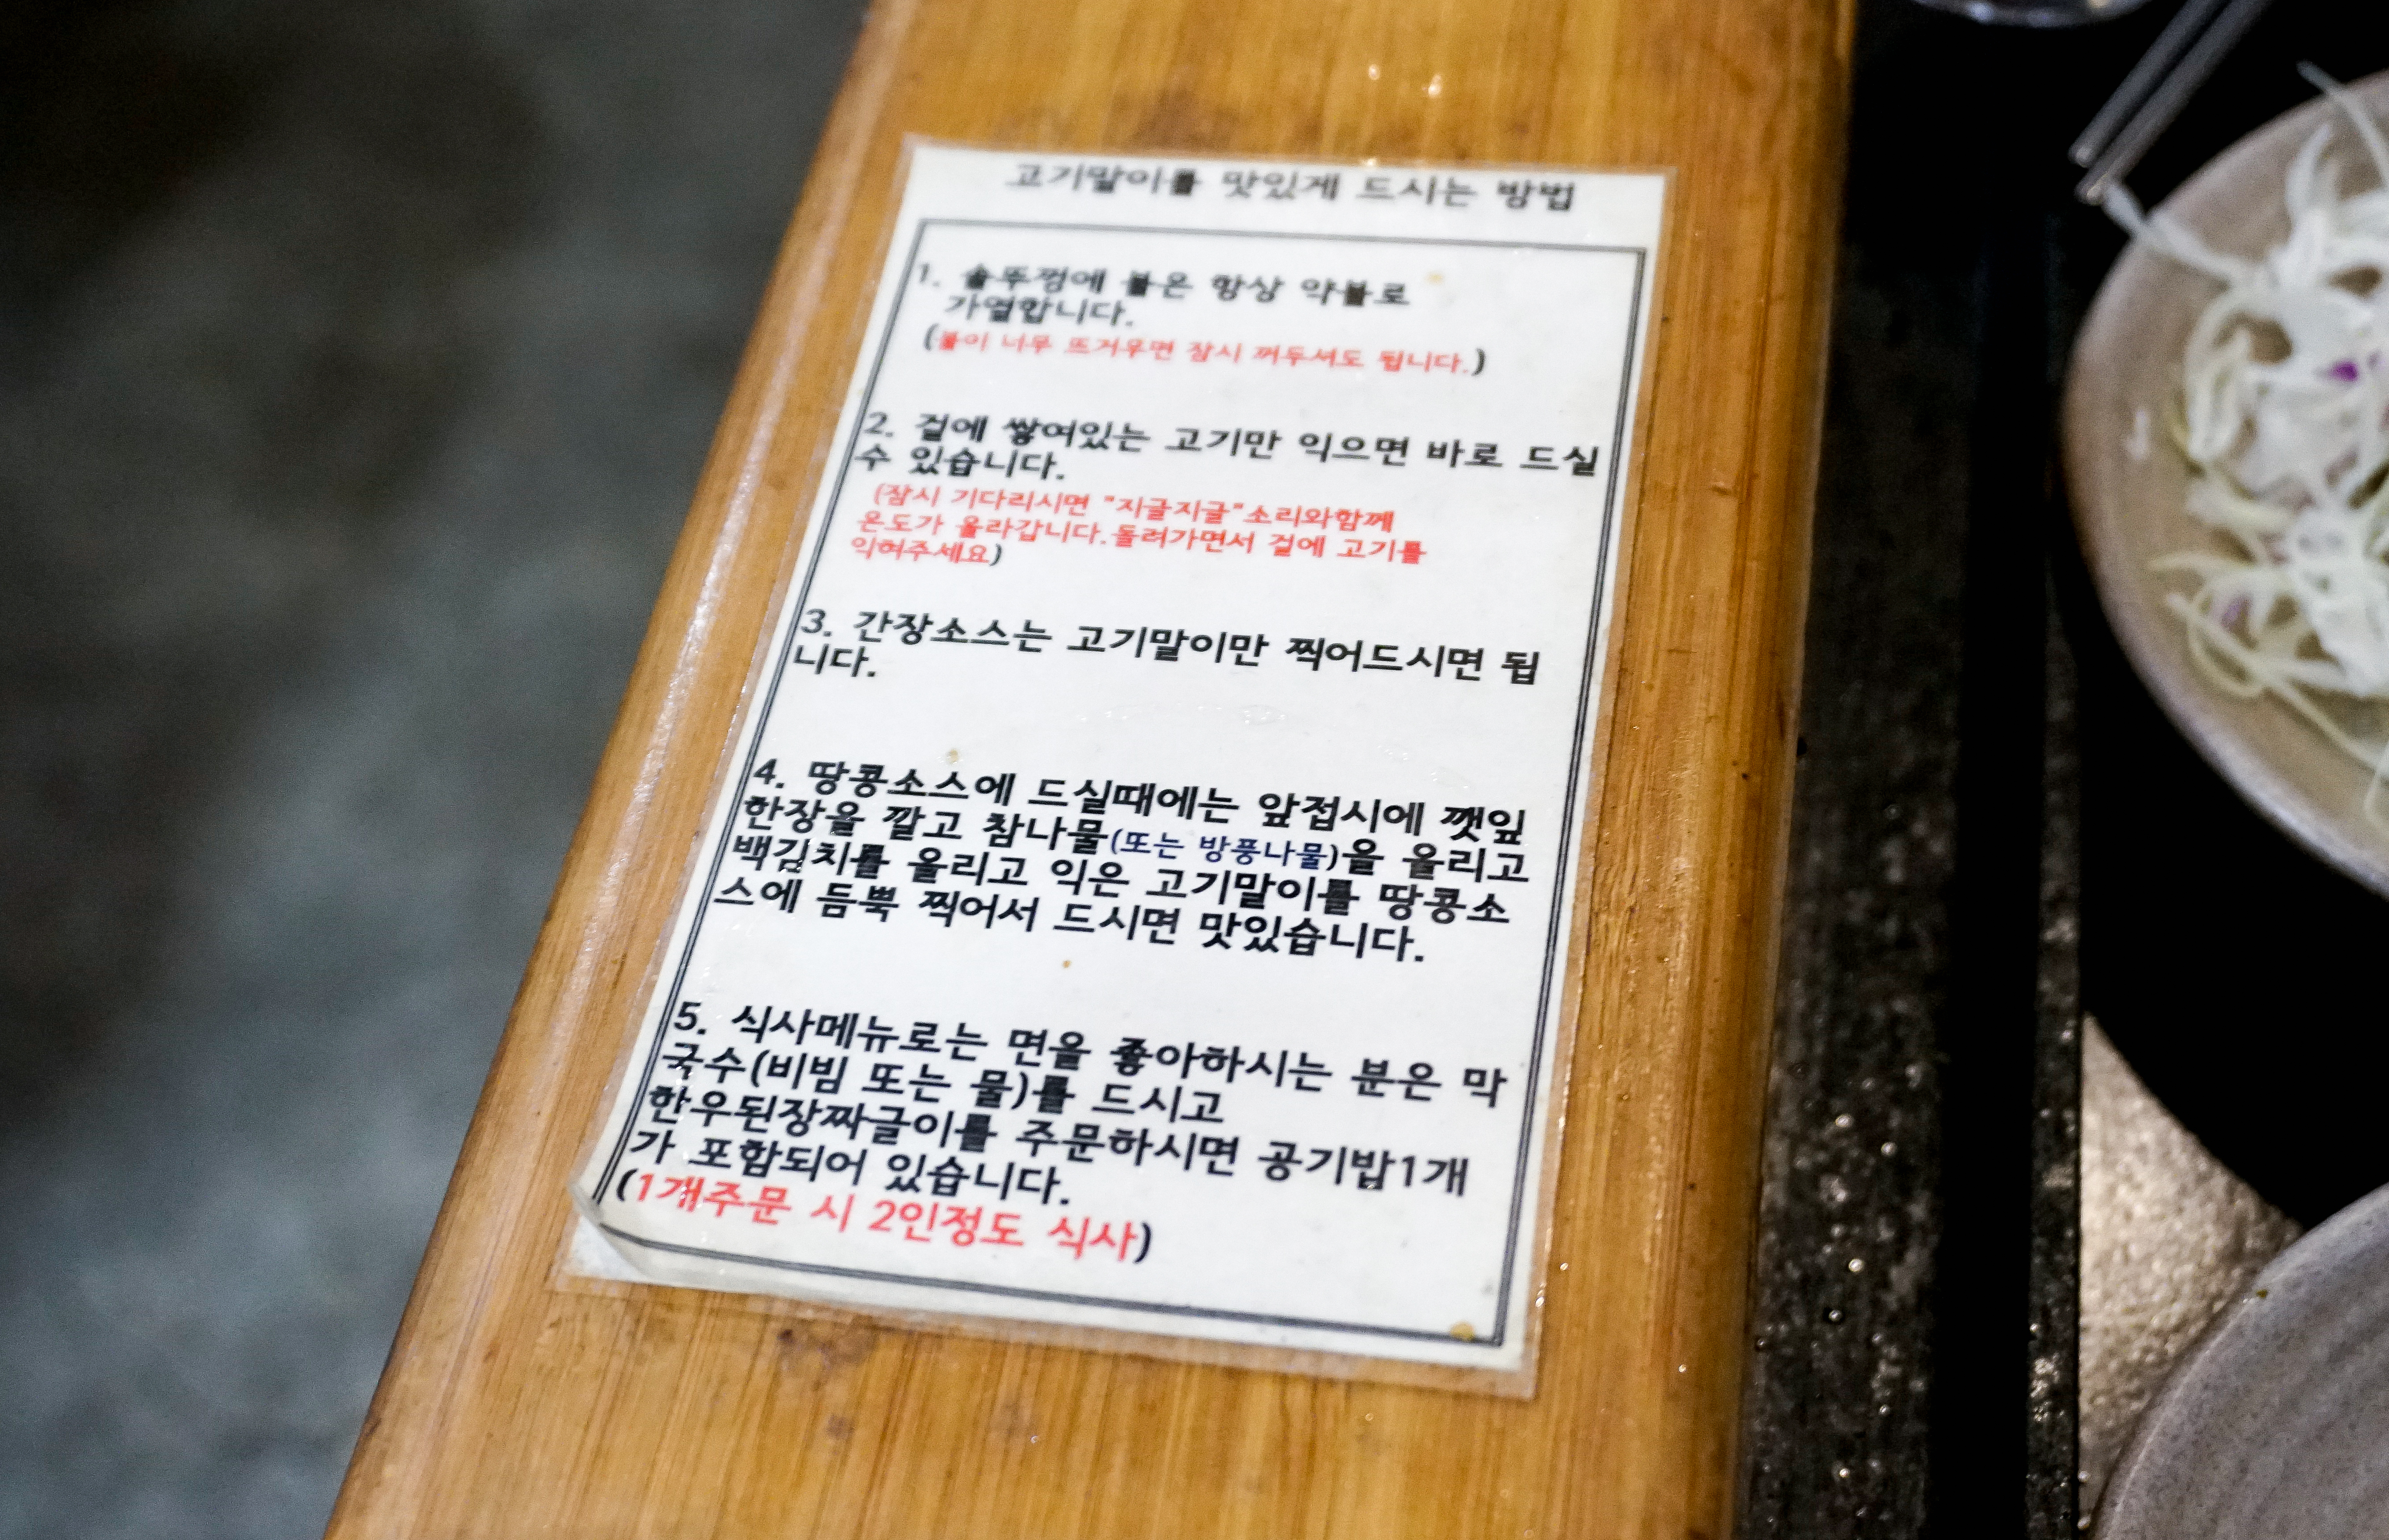 고기말이를 맛있게 드시는 방법
1. 솥뚜껑에 불은 항상 약불로
가열합니다.
(불이 너무 뜨거우면 잠시 꺼두셔도 됩니다.)
2. 겉에 쌓여있는 고기만 익으면 바로 드실
수 있습니다.
(잠시 기다리시면 "지글지글"소리와함께
온도가 올라갑니다.돌려가면서 겉에 고기를
익혀주세요)
3. 간장소스는 고기말이만 찍어드시면 됩
니다.
4. 땅콩소스에 드실때에는 앞접시에 깻잎
한장을 깔고 참나물(또는 방풍나물)을 올리고
백김치를 올리고 익은 고기말이를 땅콩소
스에 듬뿍 찍어서 드시면 맛있습니다.
5. 식사메뉴로는 면을 좋아하시는 분은 막
국수(비빔 또는 물)를 드시고
한우된장짜글이를 주문하시면 공기밥1개
가 포함되어 있습니다.
(1개주문 시 2인정도 식사)